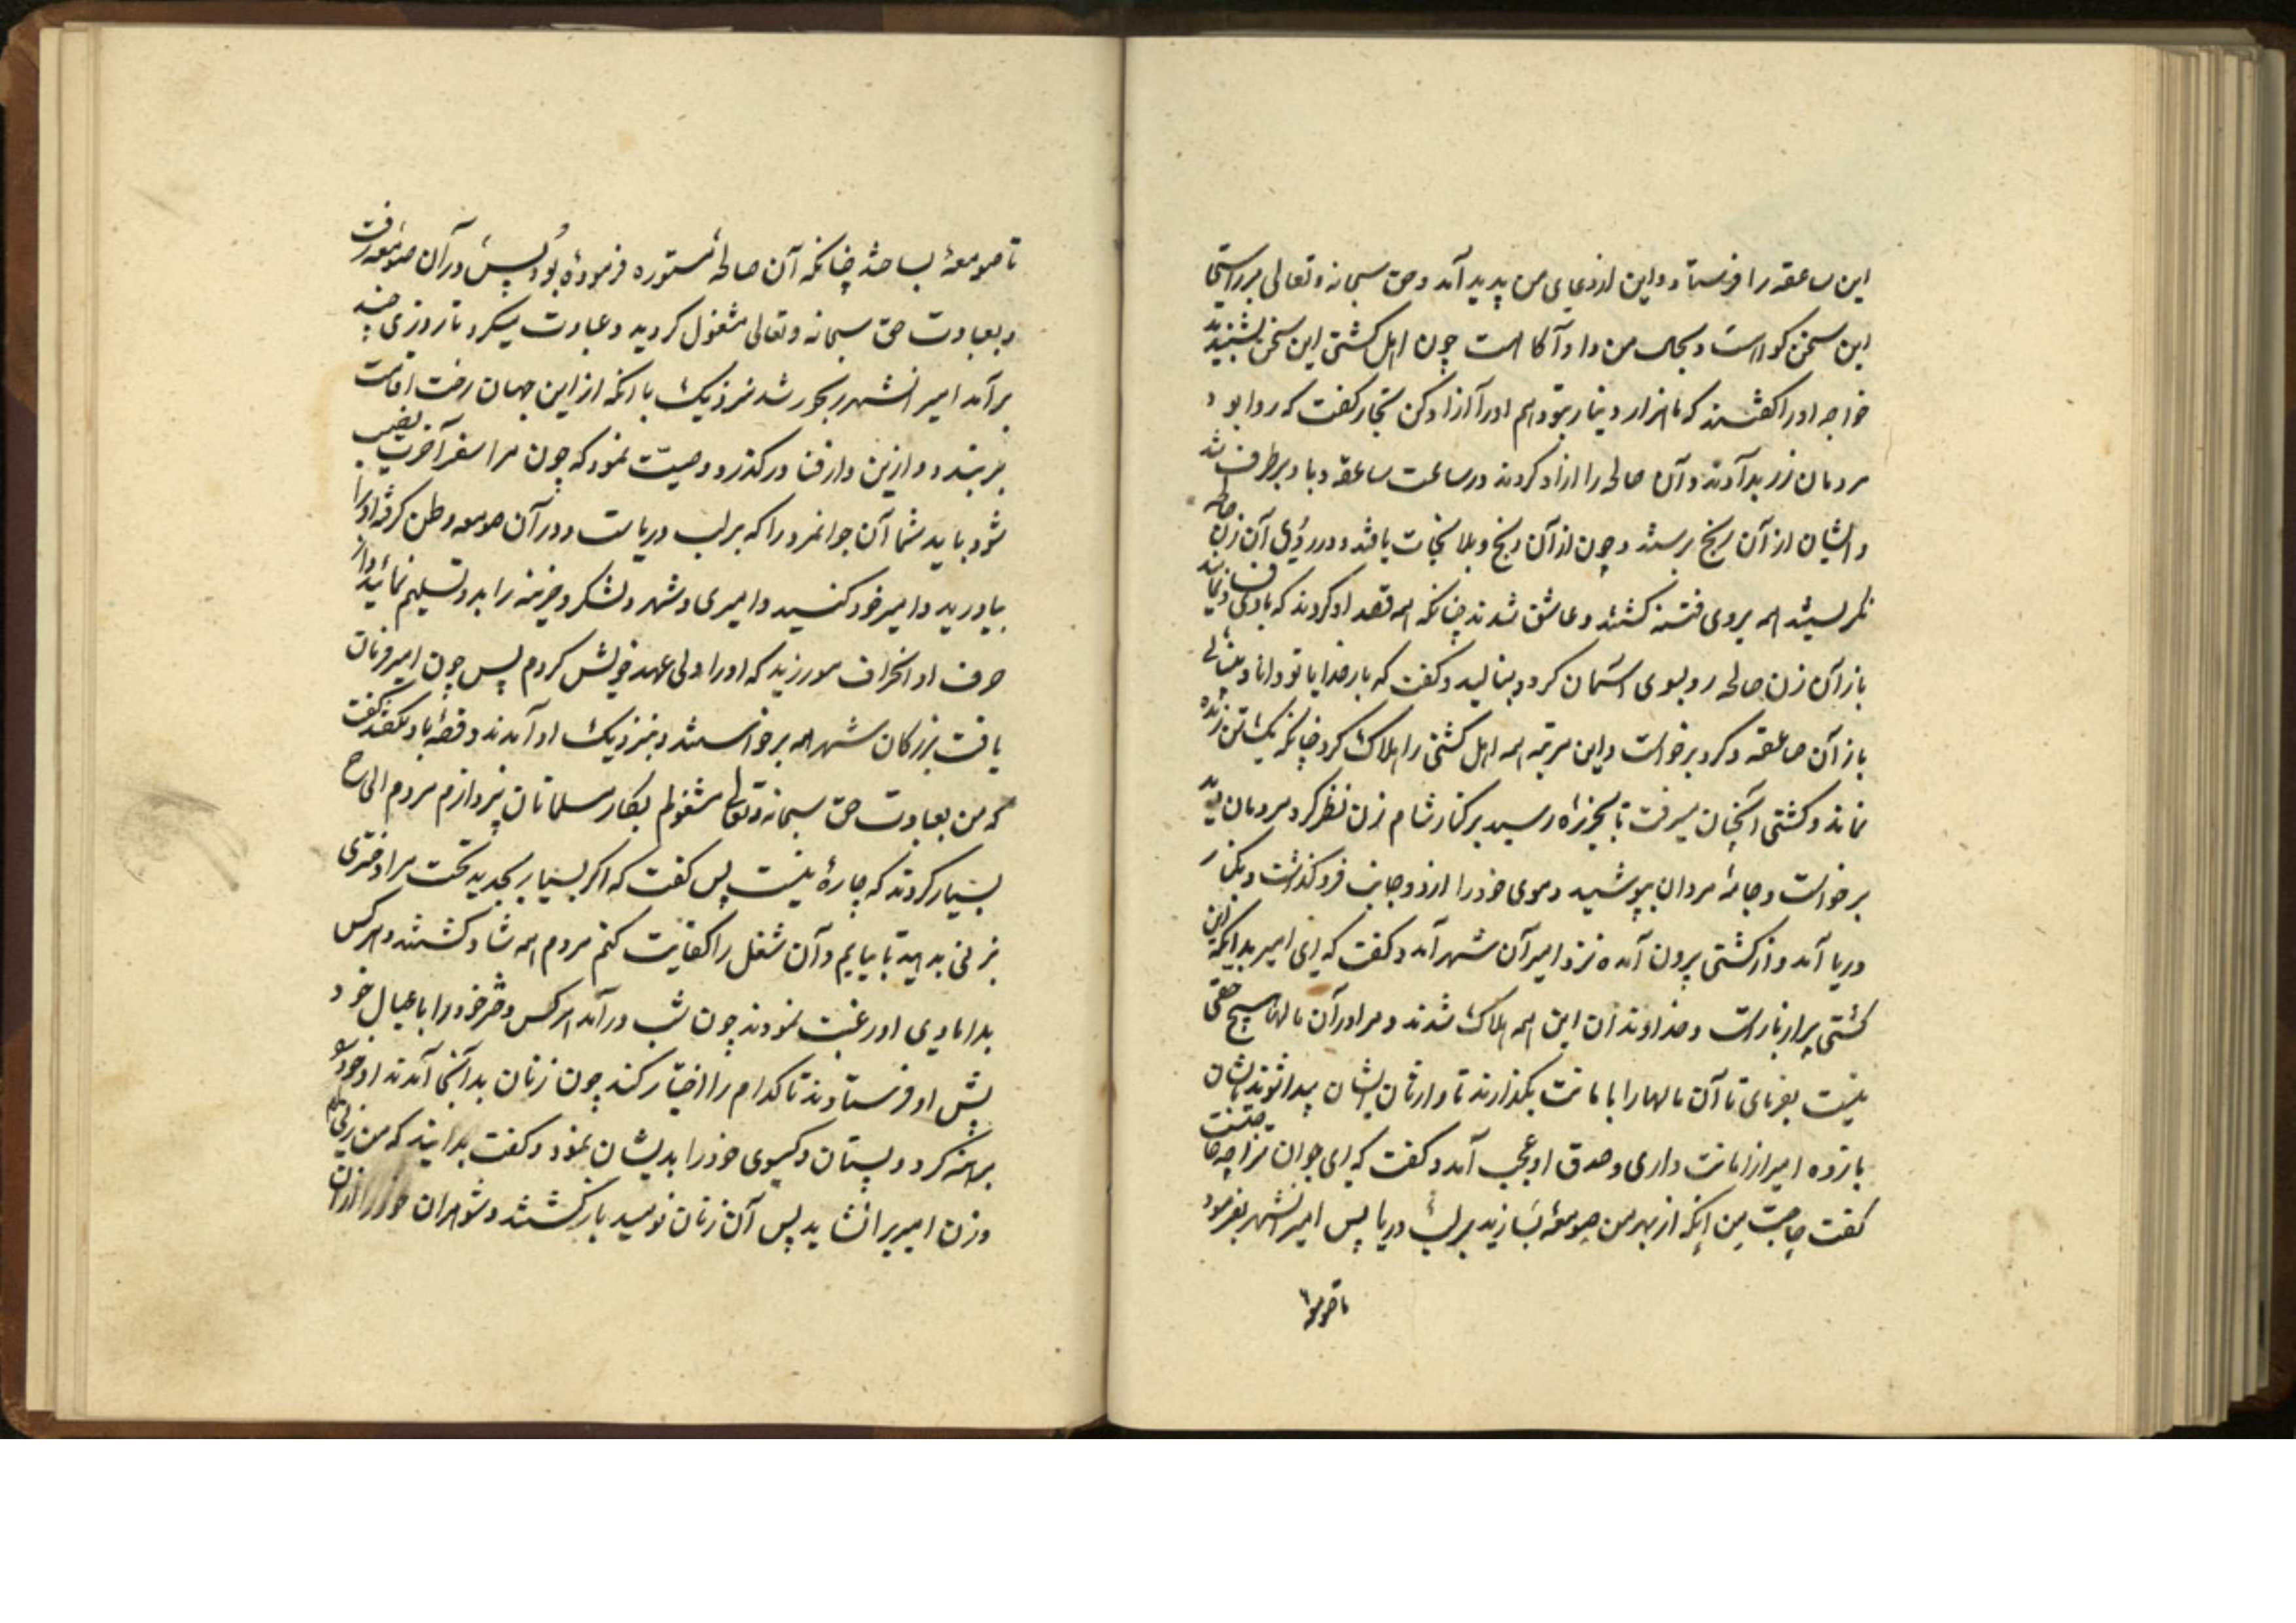 این ساعقه را فرستاد و این از دعای من پدید آمد و حق سبحانه و تعالی بر راستی
این سخن کواست و بحال من دا و آکا است چون اهل کشتی این سخن بشنیدند
خواجه او را کفتند که ما هزار دینار بتو دهیم او را آزاد کن بخار کفت که روا بود
مردمان زر بدادند و آن صالحه را ازاد کردند در ساعت ساعقه و باد برطرف شد
و ایشان از آن رنج برستند و چون از آن رنج و بلا نجات یافتند و در روی آن زن صالحه
نکریستند همه بروی فتنه کشتند و عاشق شدند چنانکه همه قصد او کردند که با وی فساد نمایند
باز آن زن صالحه رو بسوی آسمان کرد و بنالید و کفت که بار خدایا تو دانا و بینائی
باز آن صاعقه و کرد برخواست و این مرتبه همه اهل کشتی را هلاک کرد چنانکه یک تن زنده
نماند و کشتی آنچنان میرفت تا بجزیره رسید بر کنار شام زن نظر کرد مردمان دید
برخواست و جامهٔ مردان بپوشید و موی خود را از دو جانب فرو کذاشت و بکنار
دریا آمد و از کشتی بیرون آمده نزد امیر آن شهر آمد و کفت که ای امیر بدانکه این
کشتی پر از بار است و خداوندان این همه هلاک شدند و مرا در آن مالها هیچ حقی
نیست بفرمای تا آن مالها را بامانت بکذارند تا وارثان ایشان پیدا شوند بایشان
باز ده امیر از امانت داری و صدق او عجب آمد و کفت که ای جوان ترا چه حاجتست
کفت حاجت من آنکه از بهر من صومعهٔ بسازید بر لب دریا پس امیر آن شهر بفرمود
تا صومعهٔ
تا صومعهٔ بساختند چنانکه آن صالحهٔ مستوره فرموده بود و پس در آن صومعه رفت
و بعبادت حق سبحانه و تعالی مشغول کردید و عبادت میکرد تا روزی چند
برآمد امیر آن شهر رنجور شد نزدیک با آنکه از این جهان رخت اقامت
بربندد و ازین دار فنا در کذرد وصیّت نمود که چون مرا سفر آخرت نصیب
شود باید شما آن جوانمرد را که بر لب دریاست و در آن صومعه وطن کرفته او را
بیاورید و امیر خود کنید و امیری و شهر و لشکر و خزینه را بدو تسلیم نمائید و از
حرف او انحراف مورزید که او را ولی عهد خویش کردم پس چون امیر فرمان
یافت بزرکان شهر همه برخواستند و بنزدیک او آمدند و قصه با او بکفتند کفت
که من بعبادت حق سبحانه و تعالی مشغولم بکار مسلمانان نپردازم مردم الحاح
بسیار کردند که چارهٔ نیست پس کفت که اکر بسیار بجدید نخست مرا دختری
بزنی بدهید تا بیایم و آن شغل را کفایت کنم مردم همه شاد کشتند و هر کس
بدامادی او رغبت نمودند چون شب درآمد هر کس دختر خود را با عیال خود
پیش او فرستادند تا کدام را اختیار کند چون زنان بدآنجا آمدند او خود را
برهنه کرد و پستان و کیسوی خود را بدیشان نمود و کفت بدانید که من زنی‌ام
و زن امیر را نشاید پس آن زنان نومید باز کشتند و شوهران خود را از آن